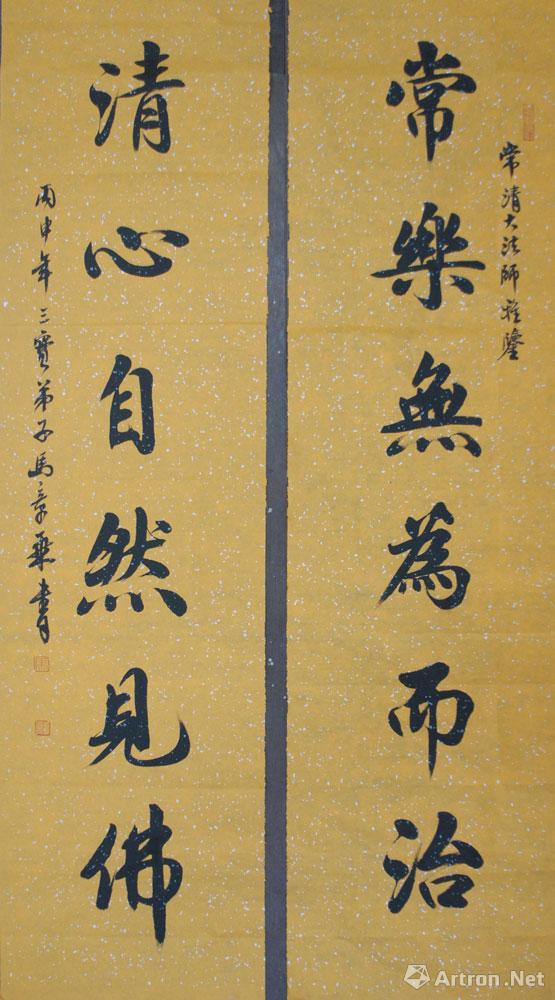 常清大法師雅鑒
常樂無為而治
清心自然見佛
丙申年三寶弟子馬章乘書
Artron.Net